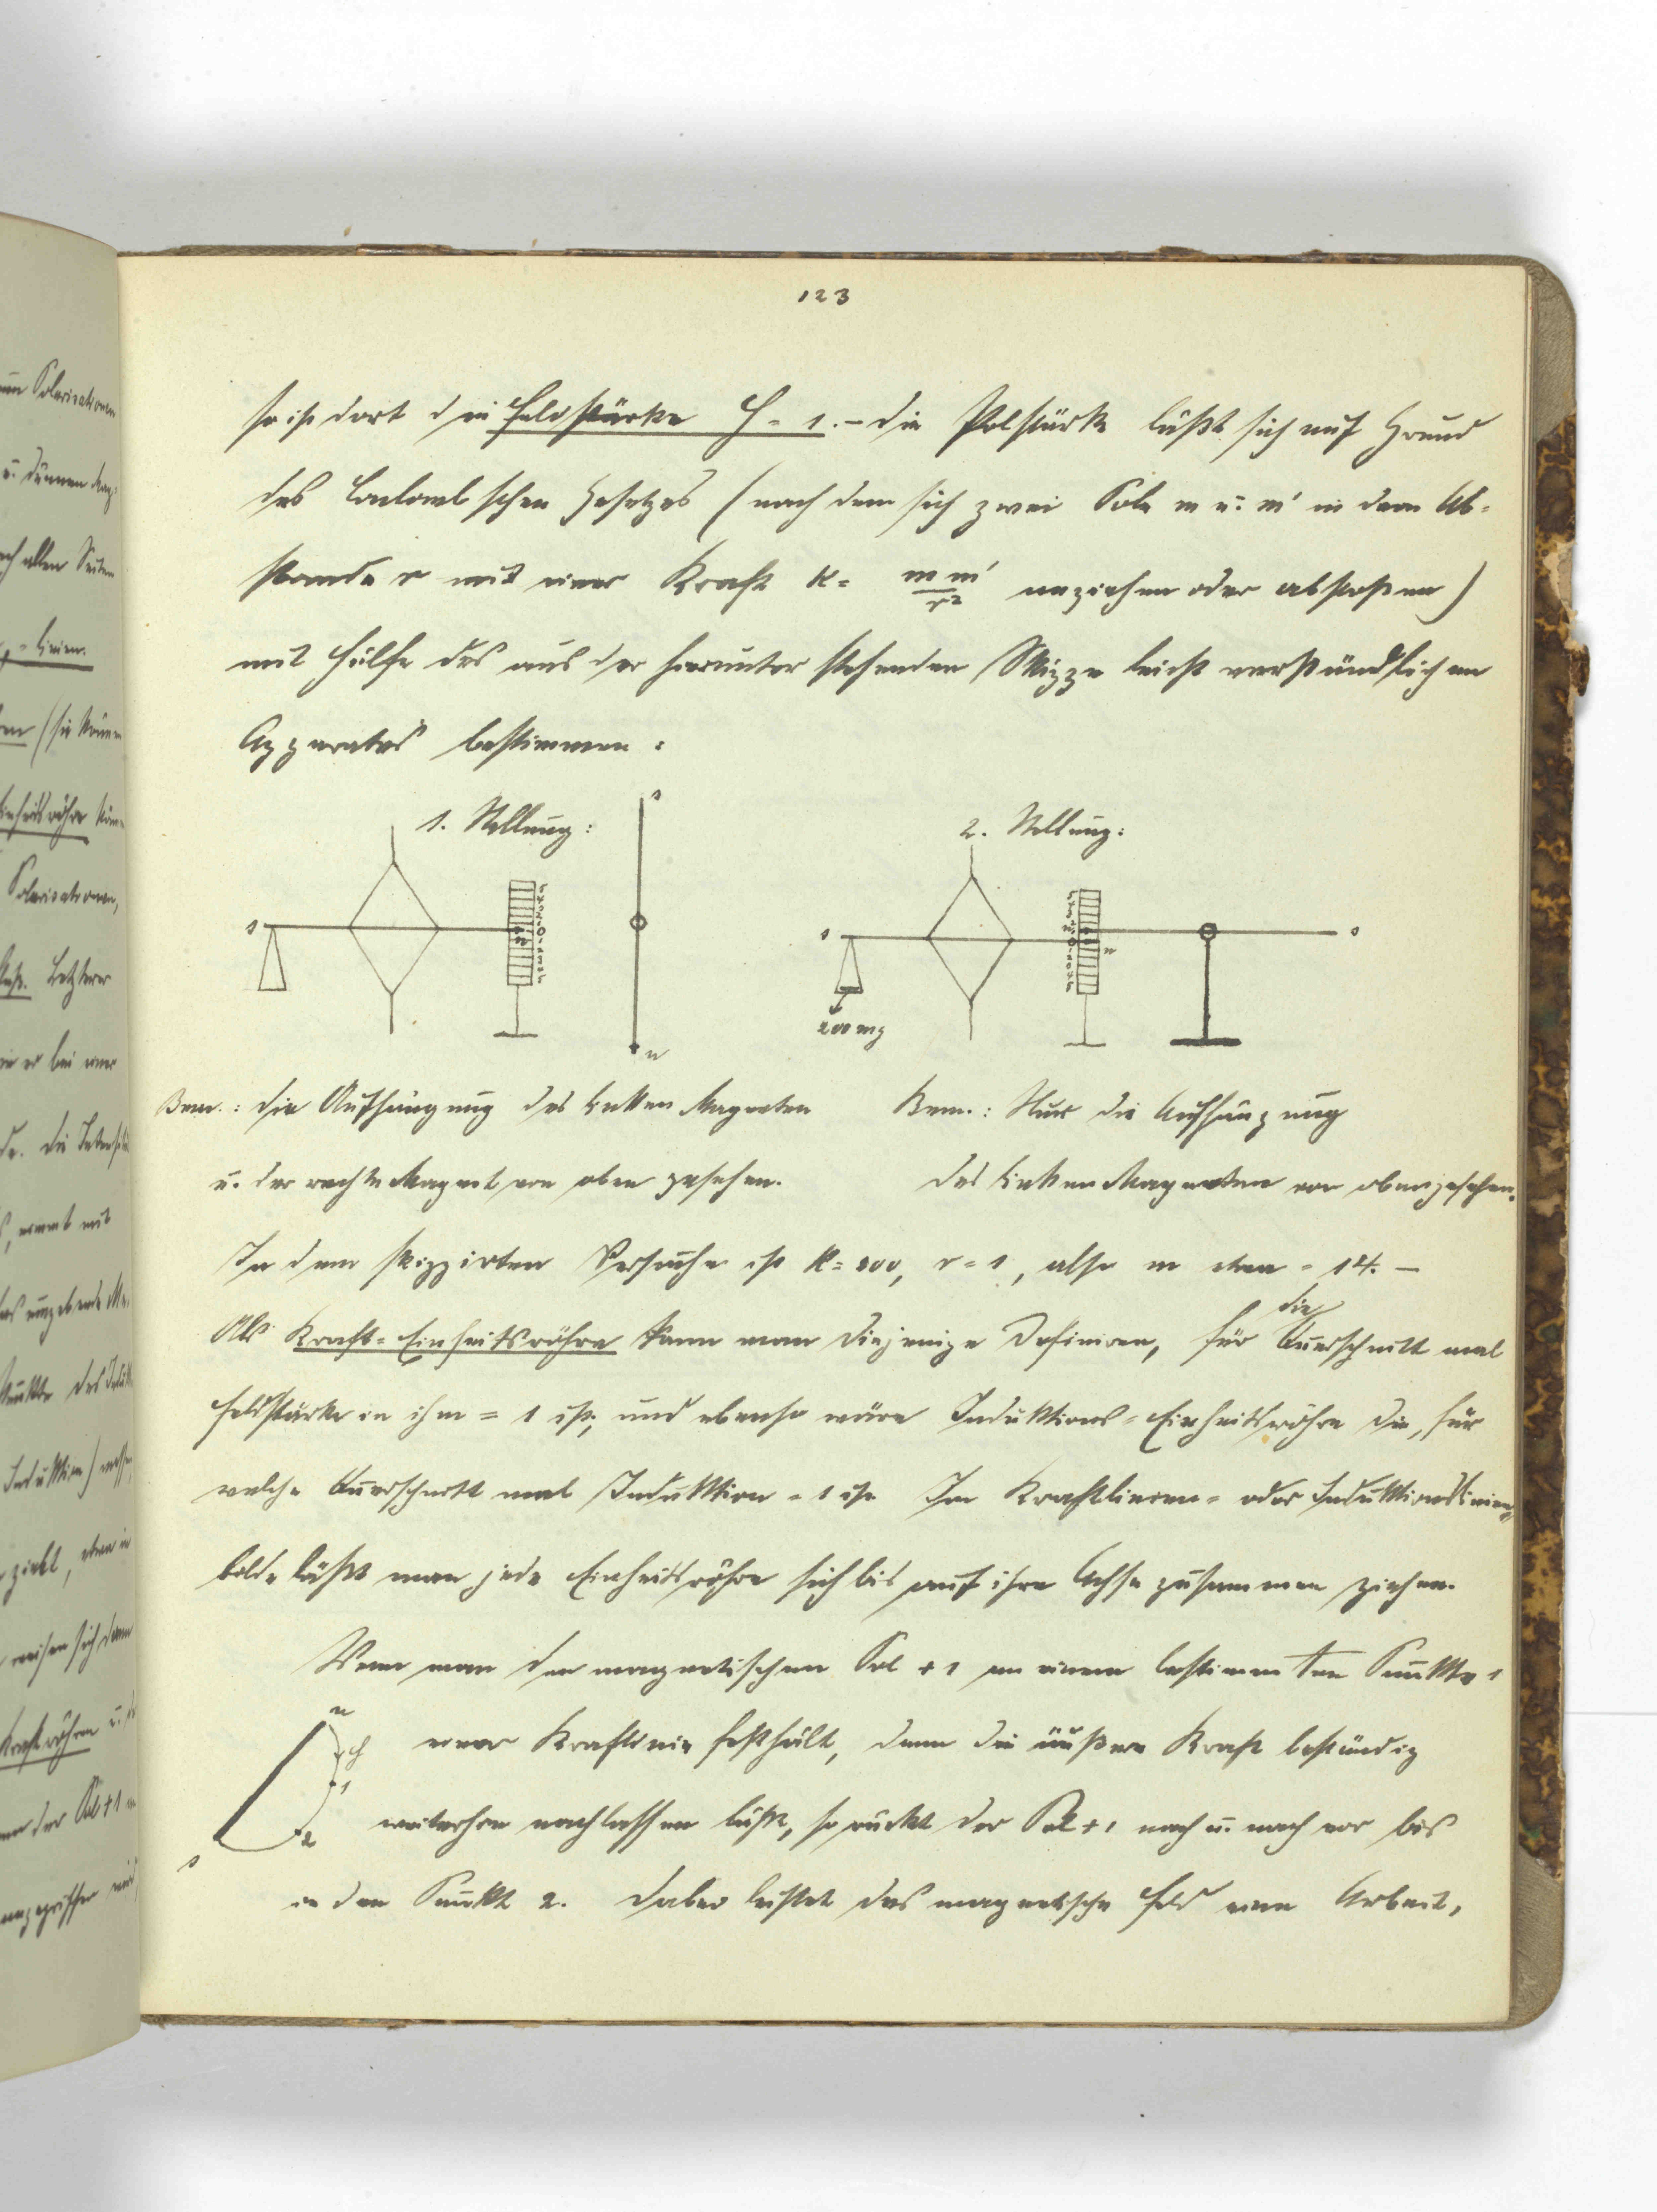 123
so ist dort die Feldstärke H = 1. – Die Polstärke läßt sich auf Grund
des Coulombschen Gesetzes (nach dem sich zwei Pole m u. m' in dem Ab-
stande r mit einer Kraft K = m m' / r² anziehen oder abstoßen)
mit Hülfe des aus der herunter stehenden Skizze leicht verständlichen
Apparates bestimmen:
1. Stellung:
2. Stellung:
s
n
s
n
s
n
s
200 mg
Bem.: Die Aufhängung des linken Magneten
u. der rechte Magnet von oben gesehen.
Bem.: Nur die Aufhängung
des linken Magneten von oben gesehen.
In dem skizzirten Versuche ist K = 200, r = 1, also m etwa = 14. –
Als Kraft-Einheitsröhre kann man diejenige definiren, für die Querschnitt mal
Feldstärke in ihm = 1 ist, und ebenso wäre Induktions-Einheitsröhre die, für
welche Querschnitt mal Induktion = 1 ist. Im Kraftlinien- oder Induktionslinien-
bilde läßt man jede Einheitsröhre sich bis auf ihre Achse zusammen ziehen.
Wenn man den magnetischen Pol +1 an einem bestimmten Punkte 1
einer Kraftlinie festhält, dann die äußere Kraft beständig
weiterhin nachlassen läßt, so rückt der Pol +1 nach u. nach vor bis
in den Punkt 2. Dabei leistet das magnetische Feld eine Arbeit,
n
H
1
2
s